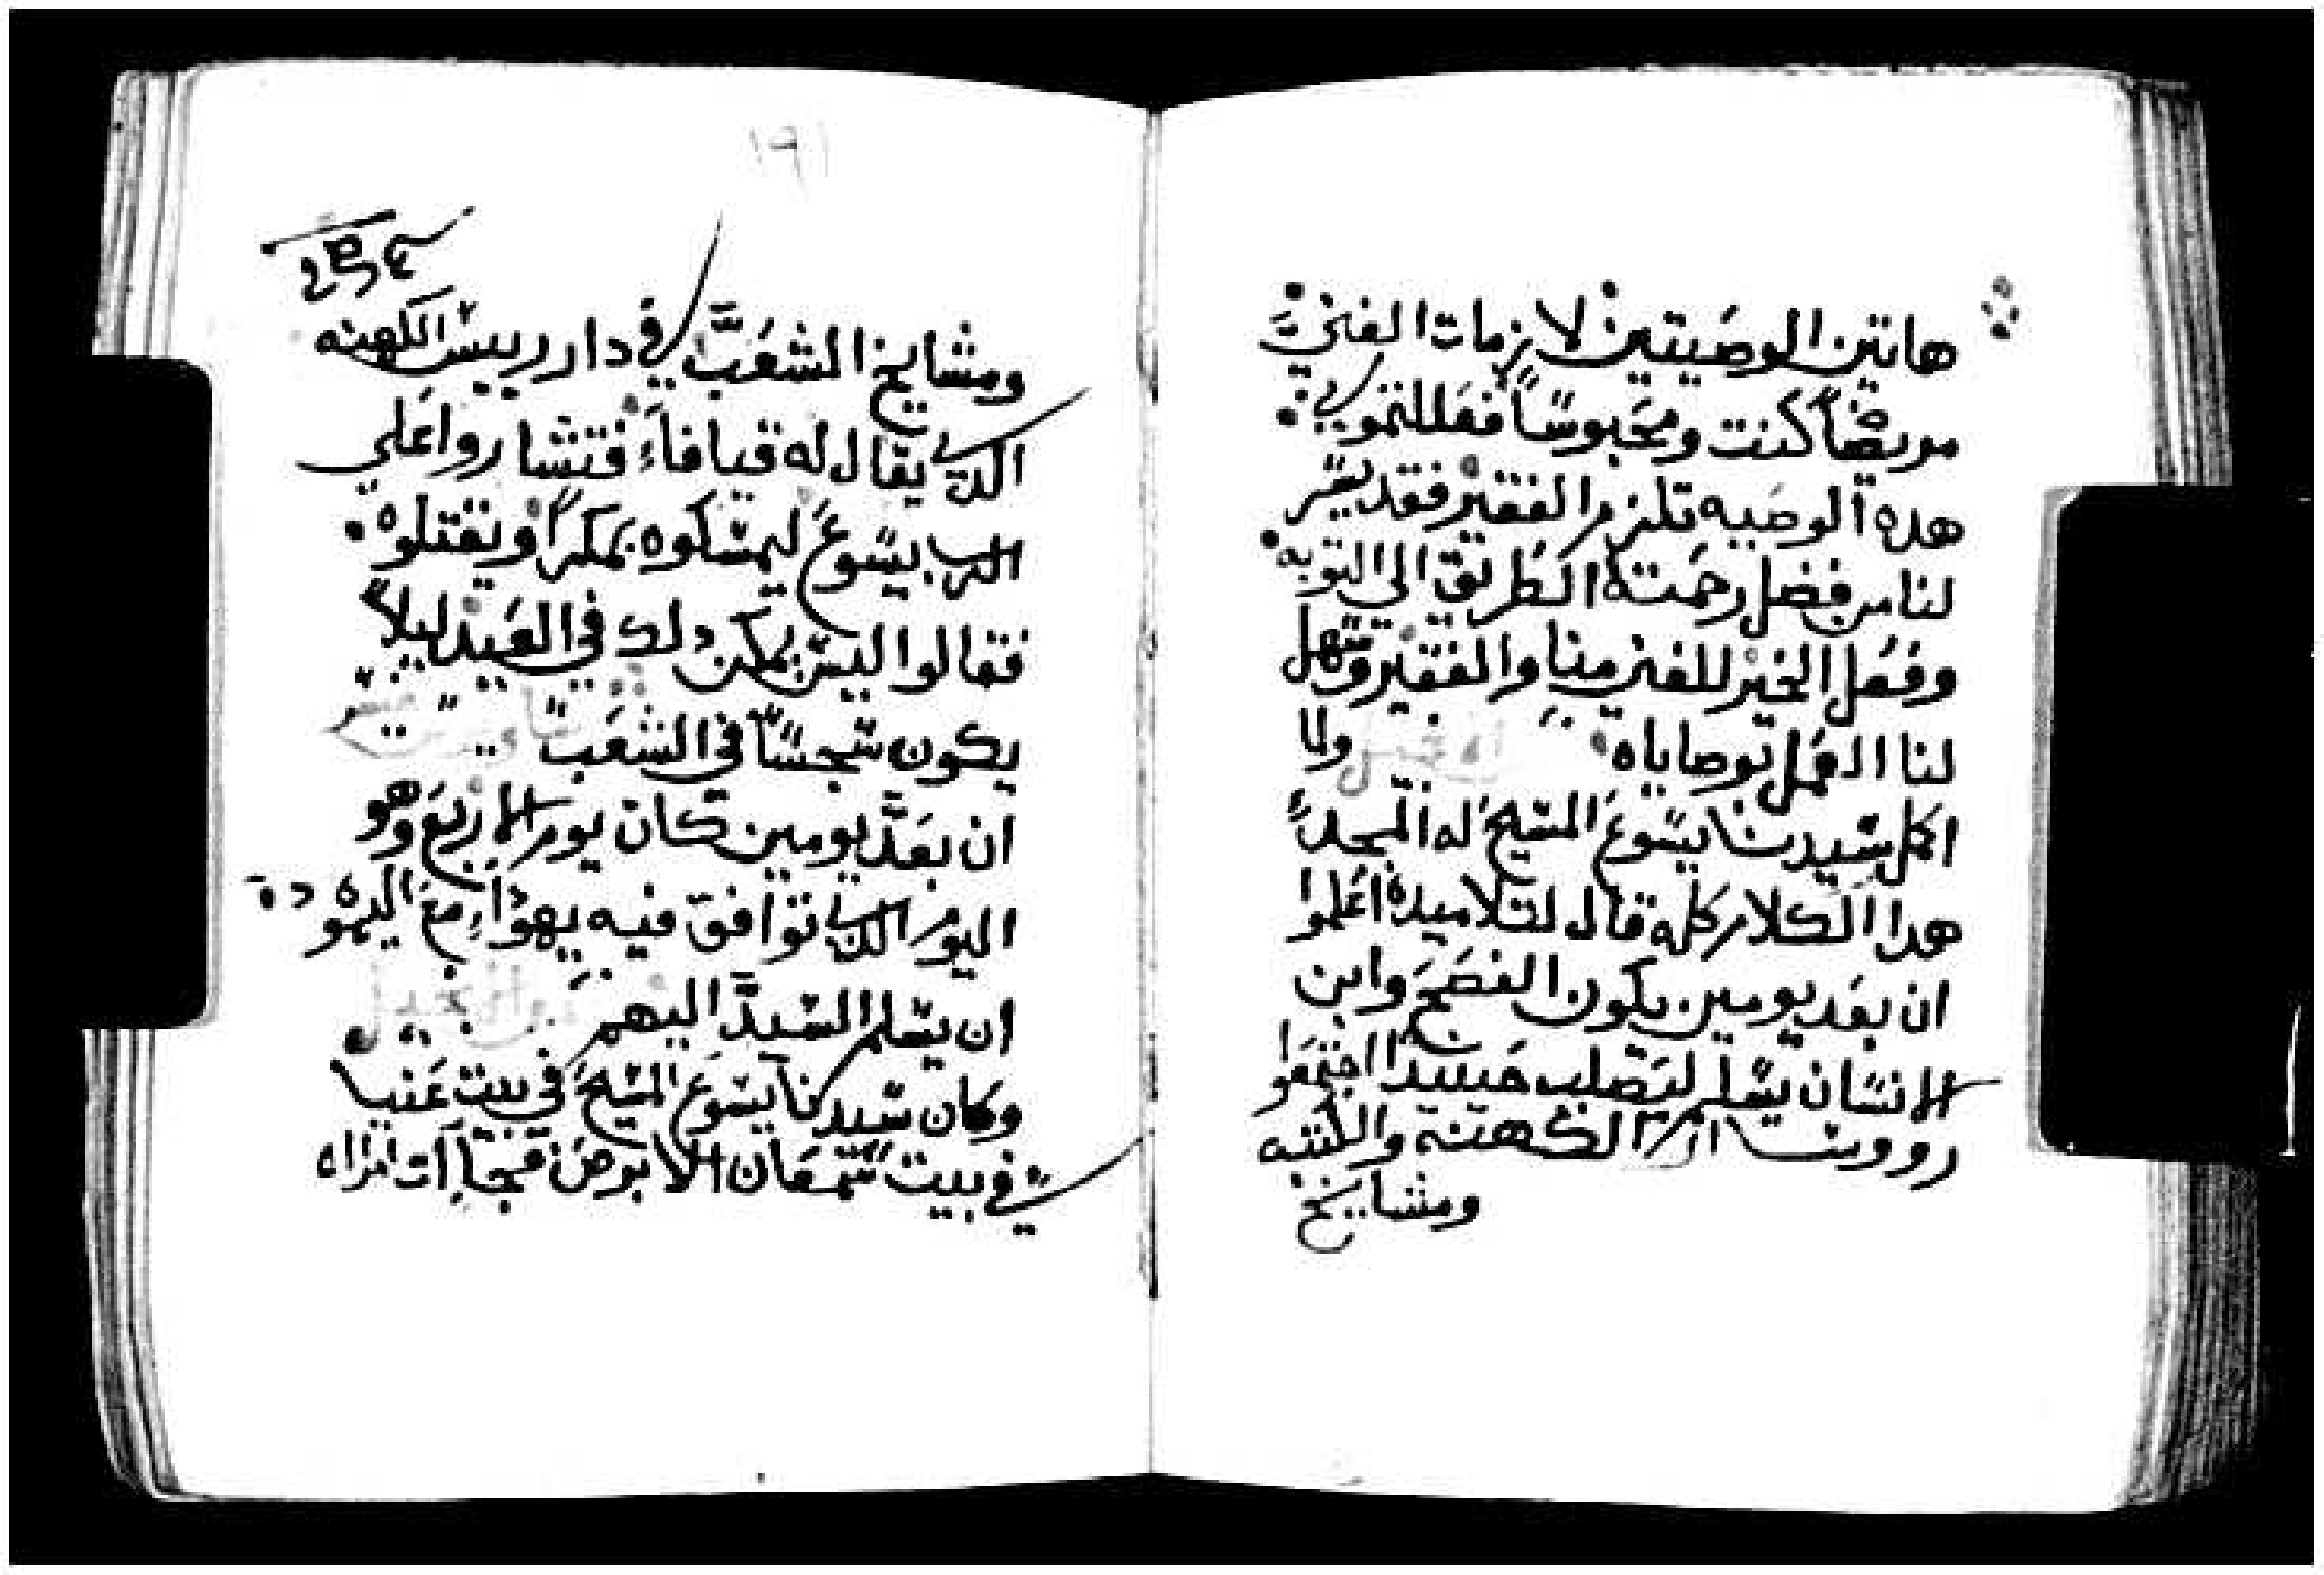 هاتين الوصيتين لازمات الغني
مريضاً كنت ومحبوساً
هده الوصيه تلزم الفقير فقد يسر
لنا من فضل رحمته الطريق الي التوبه
وفعل الخير للغني منا والفقير وسهل
لنا العمل بوصاياه ولما
اكمل سيدنا يسوع المسيح له المجد
هدا الكلام كله قال لتلاميده اعلموا
ان بعد يومين يكون الفصح وابن
الانسان يسلم ليصلب حينيدا اجتمعوا
روو الكهنه والكتبه
ومشايخ
١٩١
ومشايخ الشعب في دار رييس الكهنه
الدي يقال له قيافاء فتشاروا علي
الرب يسوع ليمسكوه بمكراً ويقتلوه
فقالوا ليس يمكن دلك في العيد ليلاً
يكون سجساً في الشعب
ان بعد يومين كان يوم الاربع وهو
اليوم الدي توافق فيه يهوداء مع اليهود
ان يسلم السيد اليهم
وكان سيدنا يسوع المسيح في بيت عنيا
في بيت سمعان الابرص فجاآت امراه